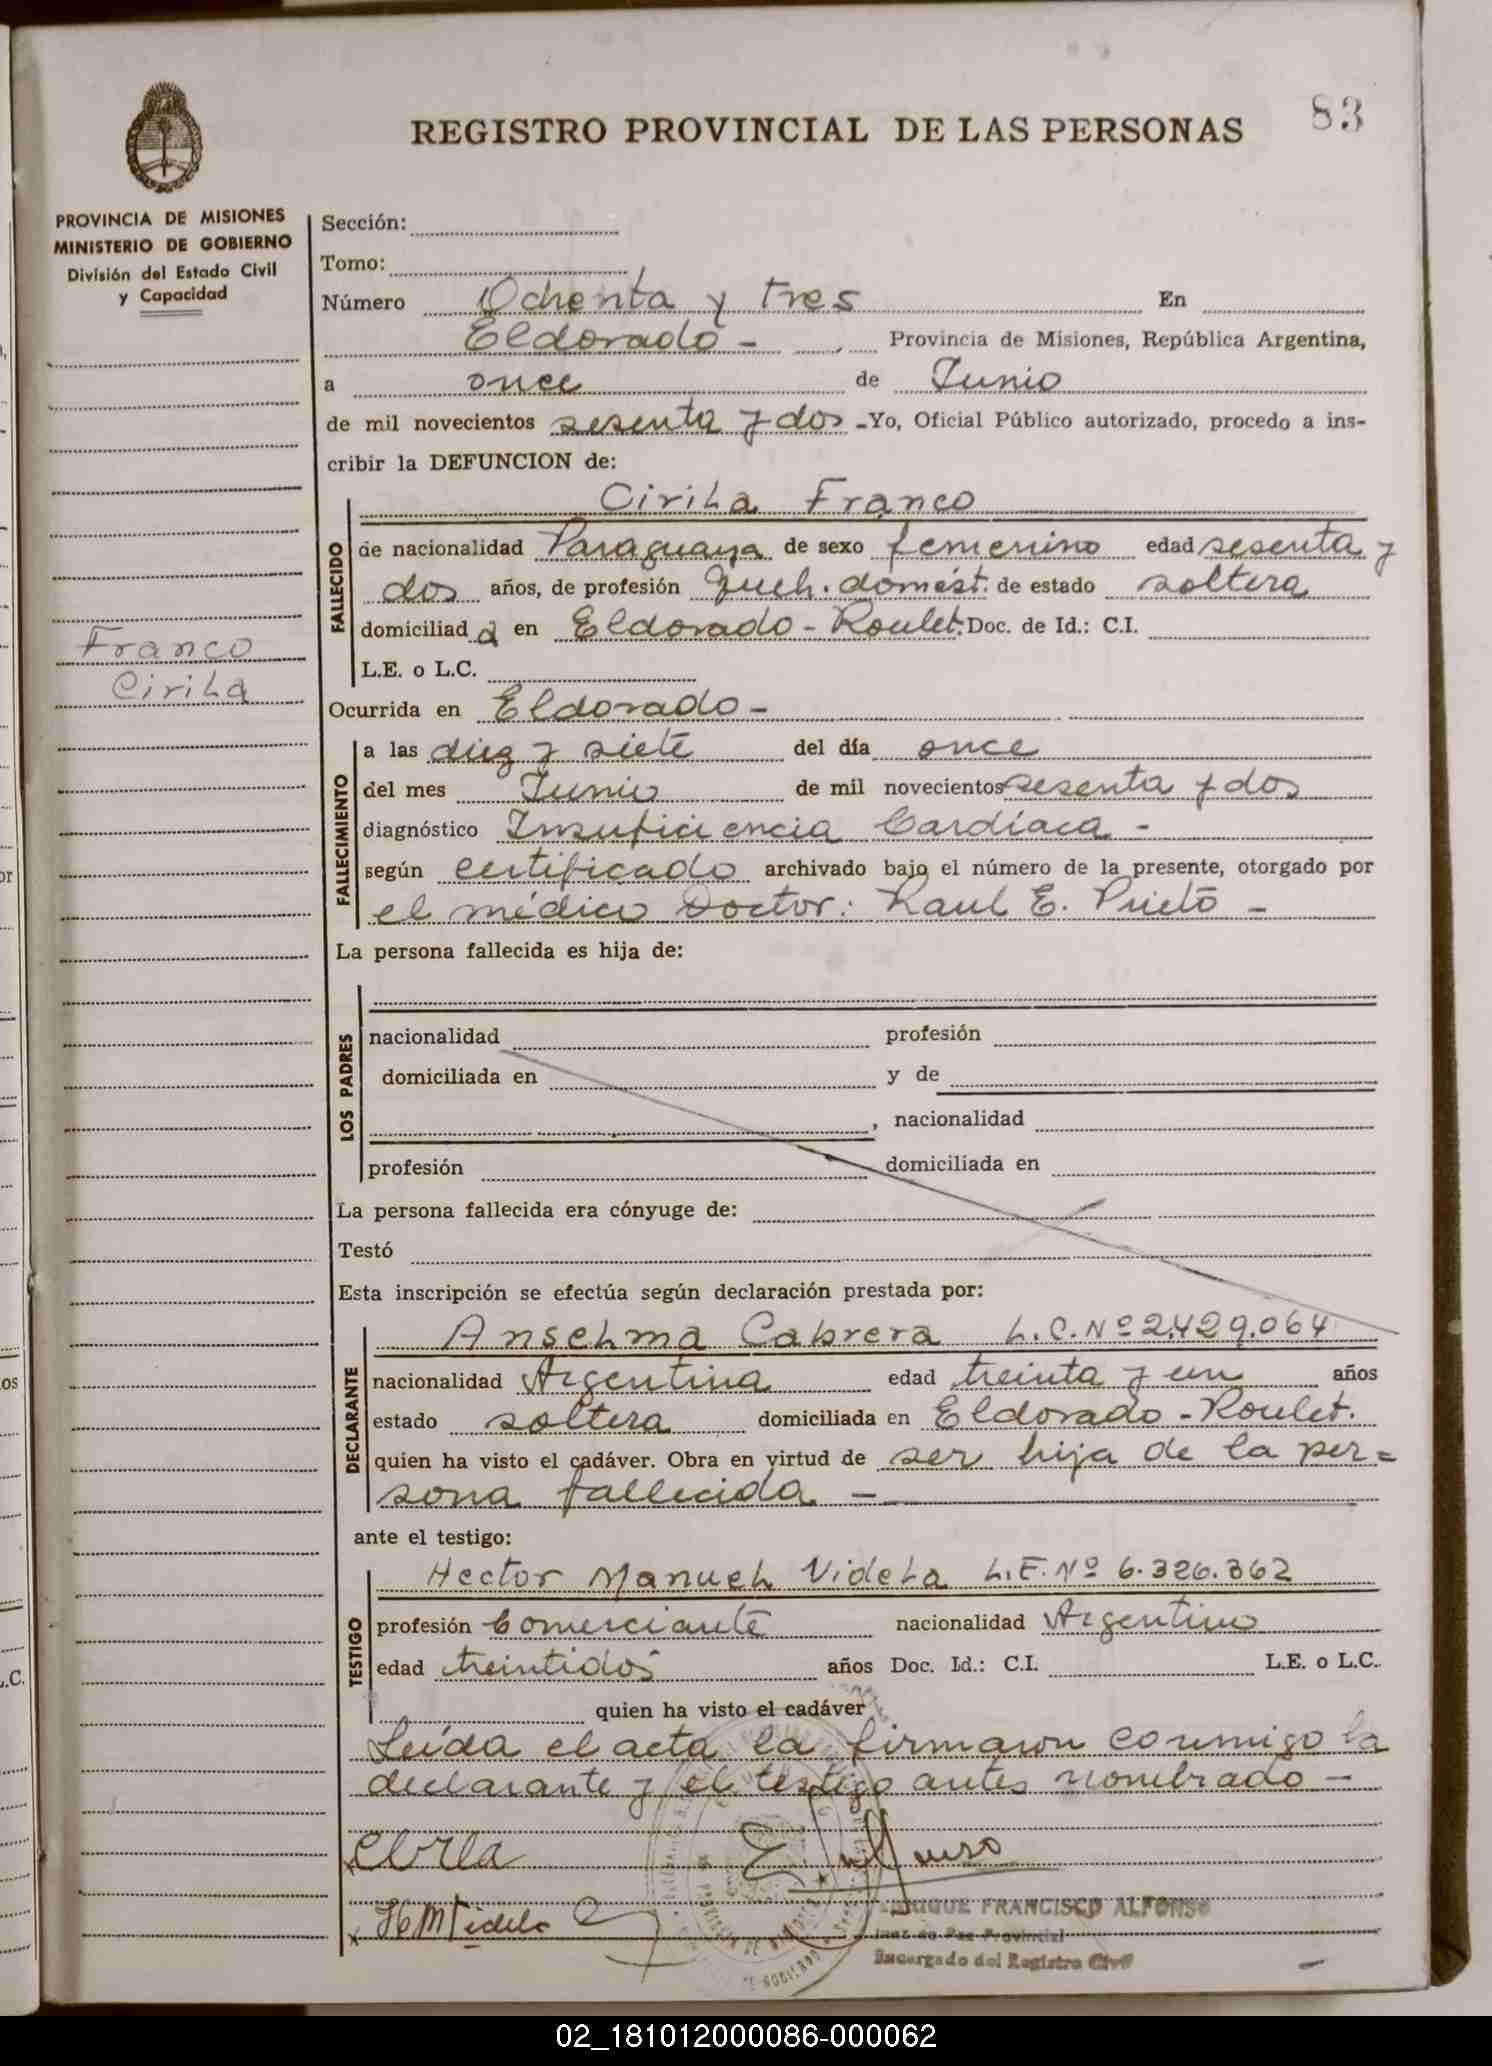 83
REGISTRO PROVINCIAL DE LAS PERSONAS
PROVINCIA DE MISIONES
MINISTERIO DE GOBIERNO
División del Estado Civil
y Capacidad
Franco
Cirila
Sección:
Tomo:
Número Ochenta y tres En
Eldorado - Provincia de Misiones, República Argentina,
a once de Junio
de mil novecientos sesenta y dos - Yo, Oficial Público autorizado, procedo a ins-
cribir la DEFUNCION de:
FALLECIDO
Cirila Franco
de nacionalidad Paraguaya de sexo femenino edad sesenta y
dos años, de profesión Queh. domést. de estado soltera
domiciliada en Eldorado - Roulet. Doc. de Id.: C.I.
L.E. o L.C.
Ocurrida en Eldorado -
FALLECIMIENTO
a las diez y siete del día once
del mes Junio de mil novecientos sesenta y dos
diagnóstico Insuficiencia Cardíaca -
según certificado archivado bajo el número de la presente, otorgado por
el médico Doctor: Raul E. Prieto -
La persona fallecida es hija de:
LOS PADRES
nacionalidad profesión
domiciliada en y de
, nacionalidad
profesión domiciliada en
La persona fallecida era cónyuge de:
Testó
Esta inscripción se efectúa según declaración prestada por:
DECLARANTE
Anselma Cabrera L.C. Nº 2.429.064
nacionalidad Argentina edad treinta y un años
estado soltera domiciliada en Eldorado - Roulet.
quien ha visto el cadáver. Obra en virtud de ser hija de la per=
sona fallecida -
ante el testigo:
TESTIGO
Hector Manuel Videla L.E. Nº 6.326.362
profesión Comerciante nacionalidad Argentino
edad treintidos años Doc. Id.: C.I. L.E. o L.C.
quien ha visto el cadáver
Leída el acta la firmaron conmigo la
declarante y el testigo antes nombrado -
HMVidela
ENRIQUE FRANCISCO ALFONSO
Juez de Paz Provincial
Encargado del Registro Civil
02_181012000086-000062